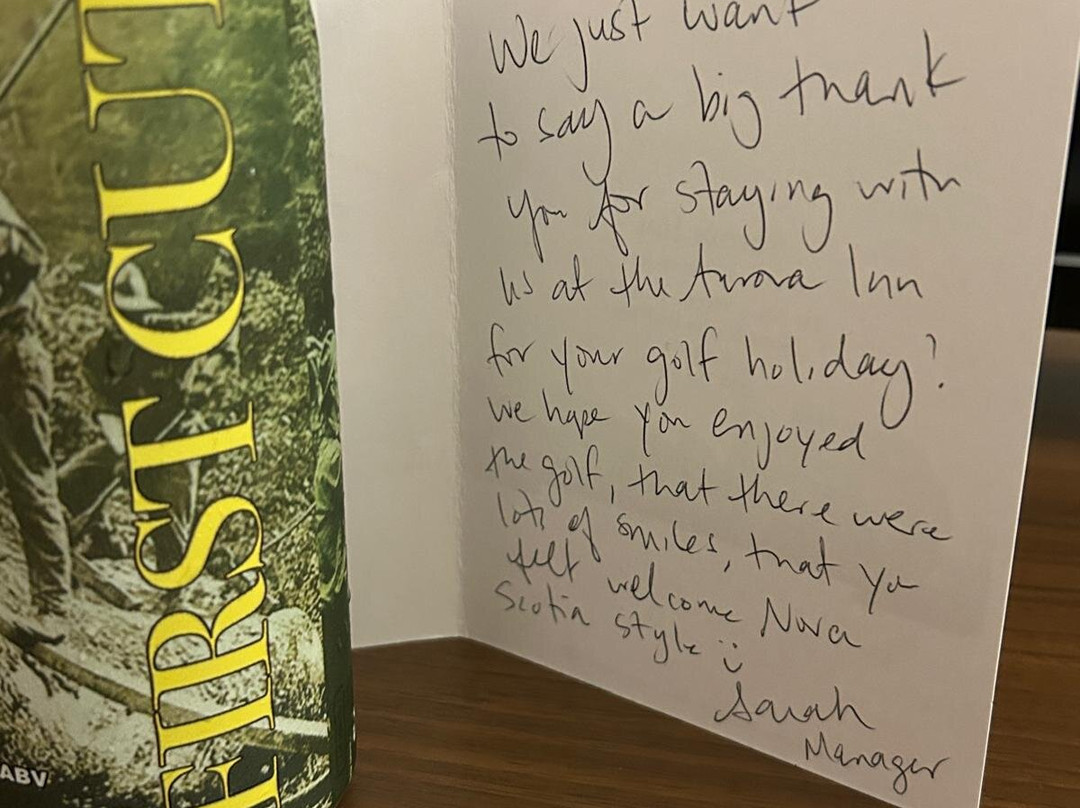 FIRST CUT
ABV
We just want
to say a big thank
you for staying with
us at the Aurora Inn
for your golf holiday!
We hope you enjoyed
the golf, that there were
lots of smiles, that you
felt welcome Nova
Scotia style :)
Sarah
Manager